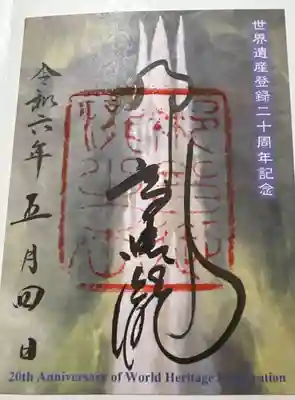 世界遺産登録二十周年記念
那智御瀧
令和六年五月四日
20th Anniversary of World Heritage Registration